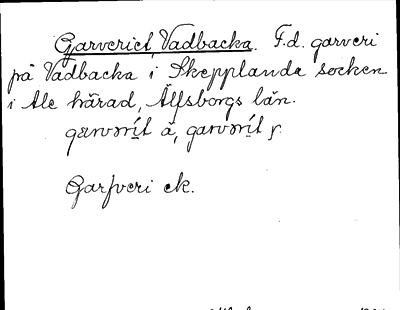 Garveriet, Vadbacka. F.d. garveri
på Vadbacka i Skepplanda socken
i Ale härad, Älfsborgs län.
Garfveri ek.